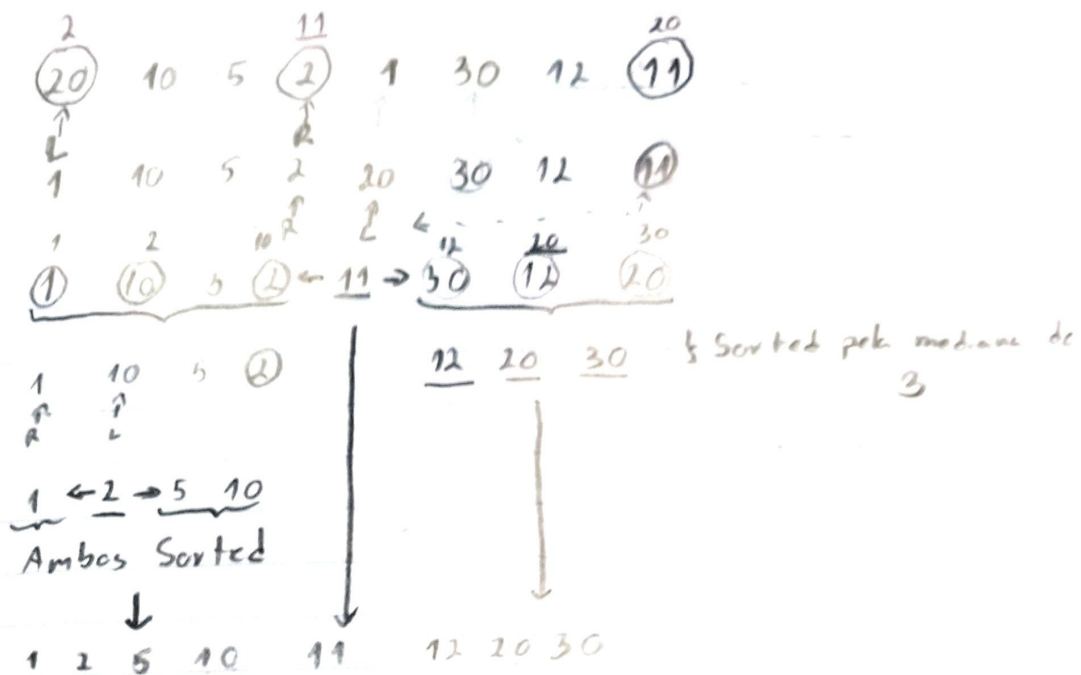 2 11 20
20 10 5 2 1 30 12 11
L R
1 10 5 2 20 30 12 11
R L
1 2 10 12 20 30
1 10 5 2 ← 11 → 30 12 20
1 10 5 2 12 20 30 } Sorted pela mediana de
3
R L
1 ← 2 → 5 10
Ambos Sorted
1 2 5 10 11 12 20 30